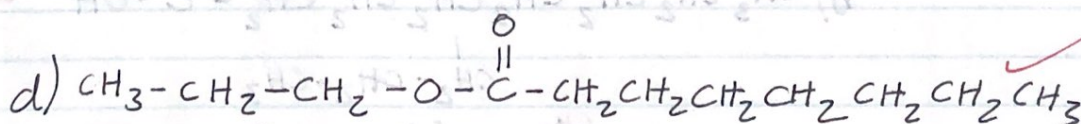 O
||
d) CH₃-CH₂-CH₂-O-C-CH₂CH₂CH₂CH₂CH₂CH₂CH₃